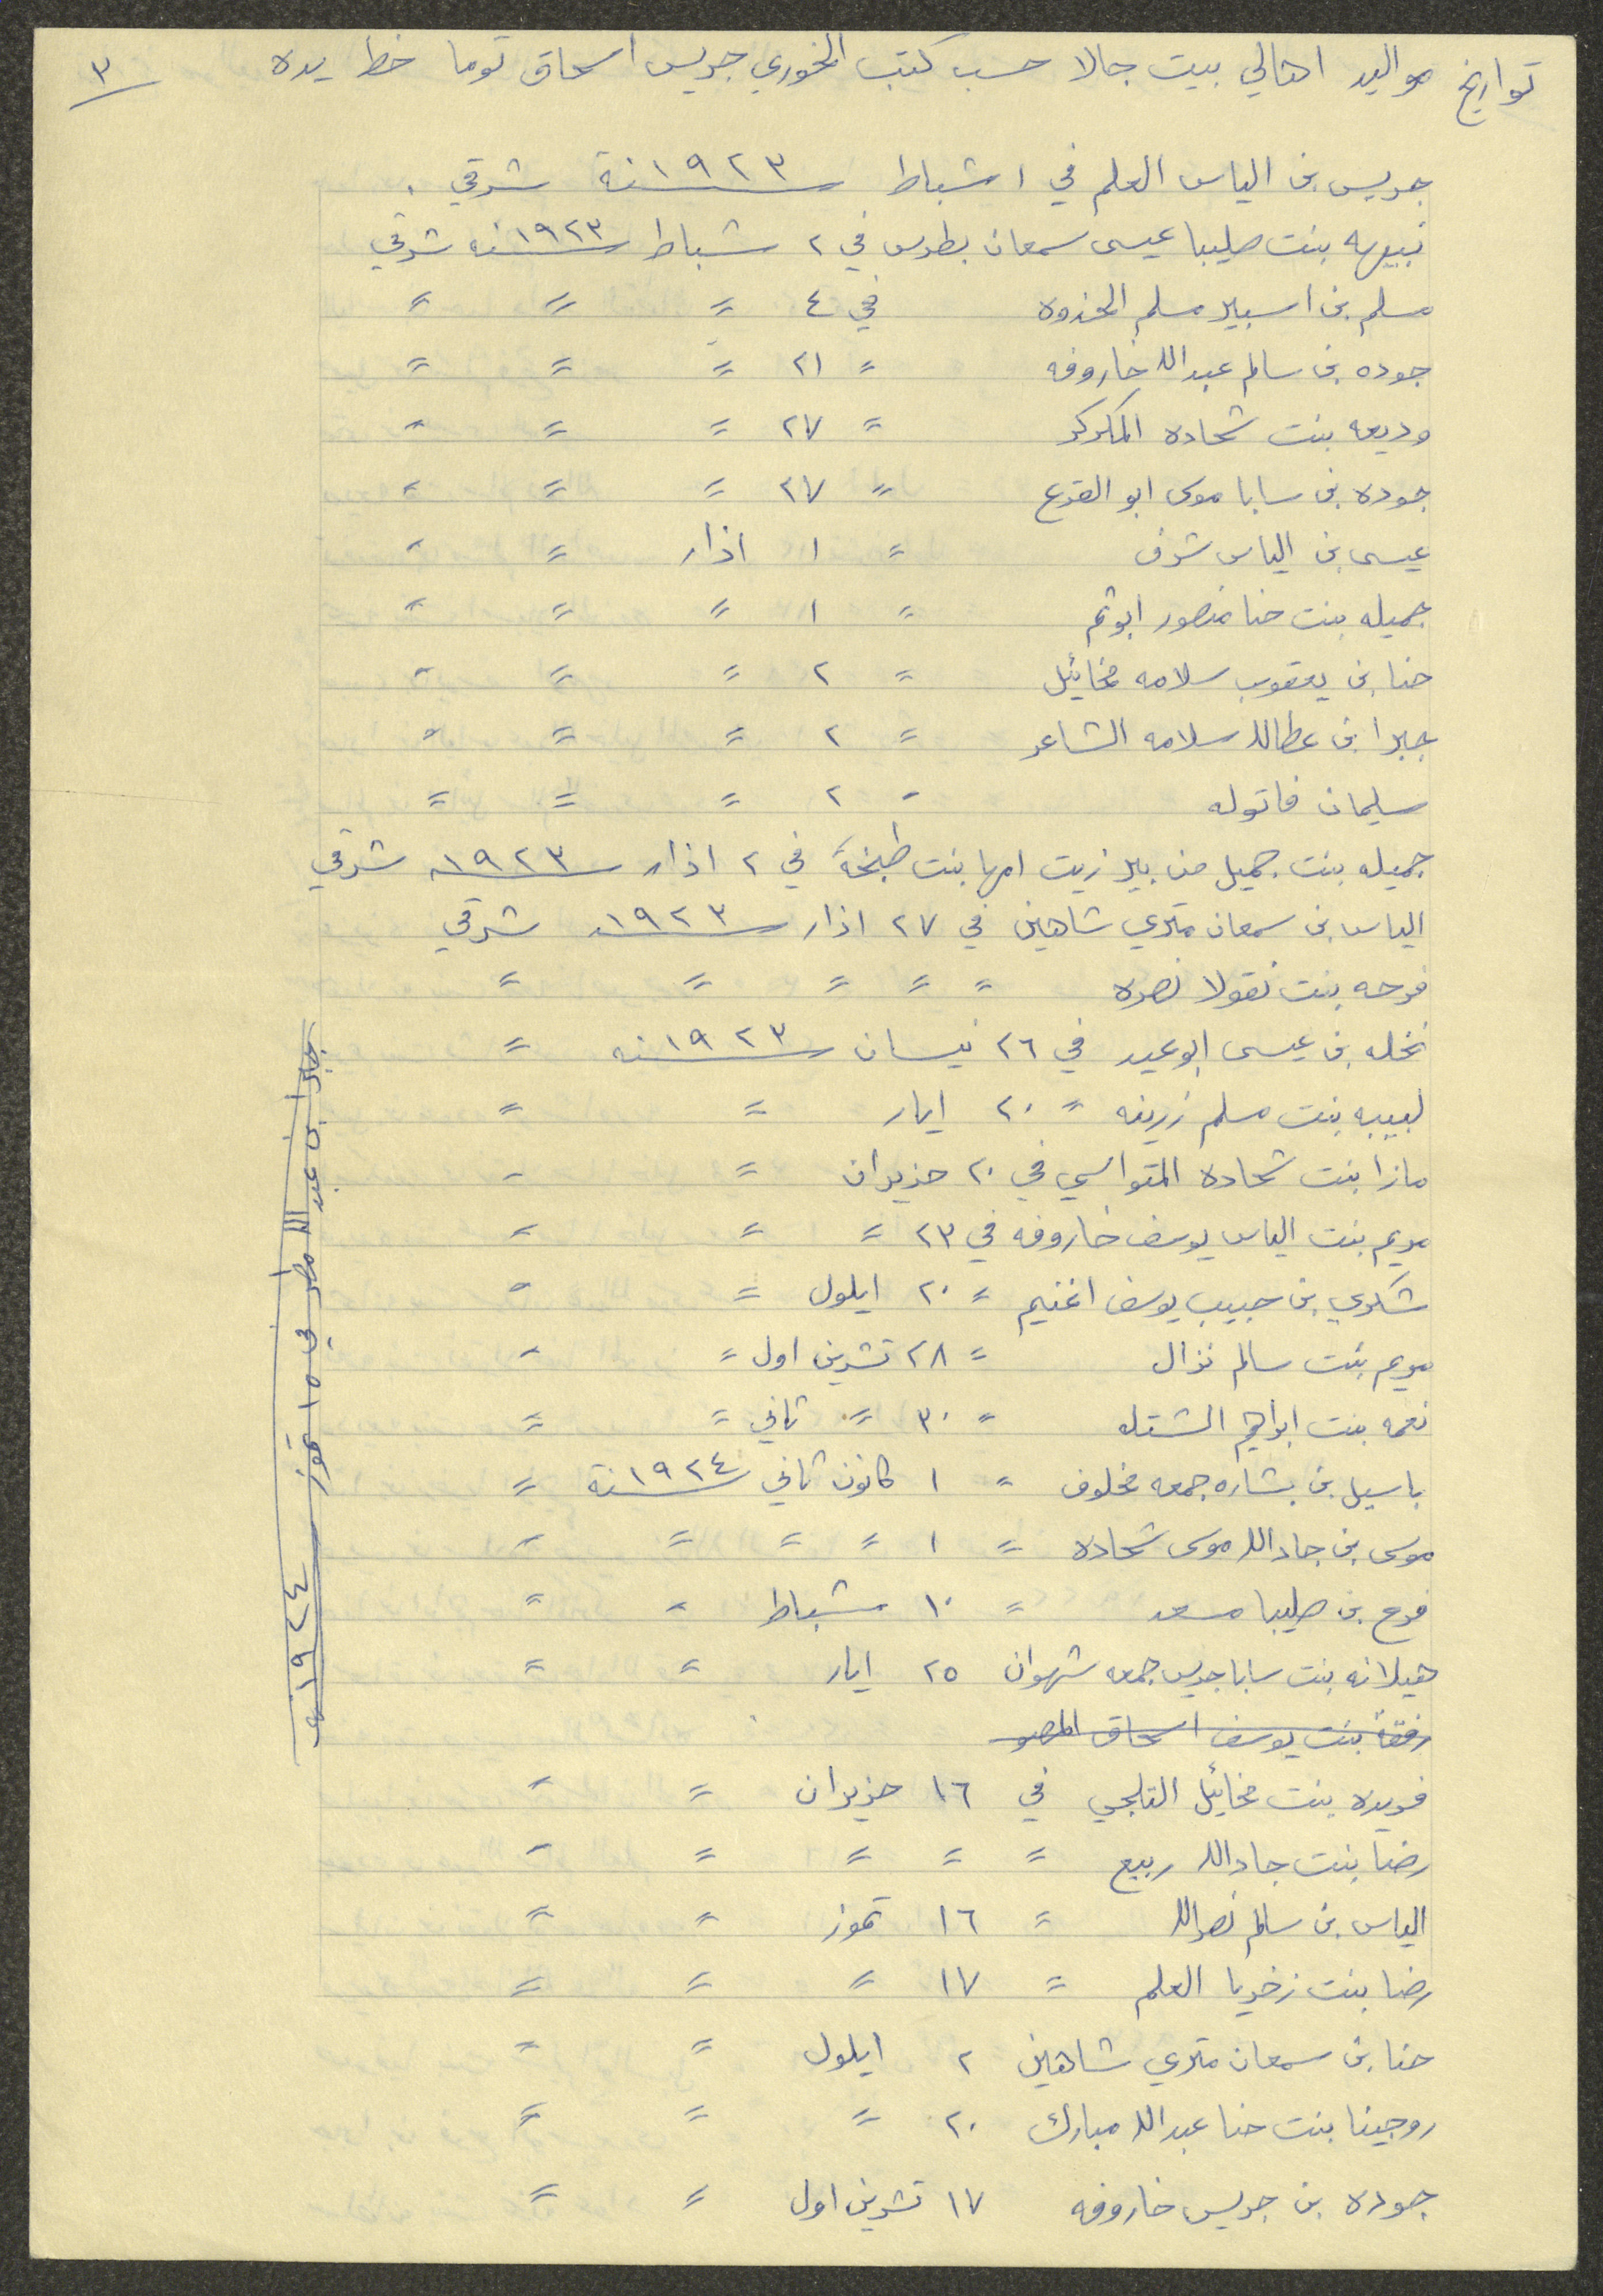 تواريخ مواليد اهالي بيت جالا حسب كتب الخوري جريس اسحاق توما خط يده ٣
جريس بن الياس العلم في ١ شباط سنة ١٩٢٣ شرقي .
نبيهه بنت صليبا عيسى سمعان بطرس في ٢ شباط سنه ١٩٢٣ شرقي
مسلم بن اسبير مسلم الحذوه في ٤ = = =
جوده بن سالم عبدالله خاروفه = ٢١ = = =
وديعه بنت شحاده المكركر = ٢٧ = = =
جوده بن سابا موسى ابو القرع = ٢٧ = = =
عيسى بن الياس شرف = ١ اذار = =
جميله بنت حنا منصور ابوتم = ١ = = =
حنا بن يعقوب سلامه مخائيل = ٢ = = =
جبرا بن عطالله سلامه الشاعر = ٢ = = =
سليمان فاتوله = ٢ = = =
جميله بنت جميل من بير زيت امها بنت طبخة في ٢ اذار سنه ١٩٢٣ شرقي
الياس بن سمعان متري شاهين في ٢٧ اذار سنه ١٩٢٣ شرقي
فرحه بنت نقولا نصره = = = = =
نخله بن عيسى ابوعيد في ٢٦ نيسان سنه ١٩٢٣ =
لبيبه بنت مسلم زرينه = ٢٠ ايار = =
مازا بنت شحاده المتواسي في ٢٠ حزيران = =
مريم بنت الياس يوسف خاروفه في ٢٣ = = =
شكري بن حبيب يوسف اغنيم = ٢٠ ايلول = =
مريم بنت سالم نزال = ٢٨ تشرين اول = =
نعمه بنت ابراهيم الشتله = ٣٠ = ثاني = =
باسيل بن بشاره جمعه مخلوف = ١ كانون ثاني سنة ١٩٢٤ =
موسى بن جادالله موسى شحاده = ١ = = = =
فرح بن صليبا مسعد = ١٠ شباط = =
هيلانه بنت سابا جريس جمعه شهوان ٢٥ ايار = =
رفقة بنت يوسف اسحاق المصو
فريده بنت مخائيل الثلجي في ١٦ حزيران = =
رضا بنت جادالله ربيع = = = = =
الياس بن سالم نصرالله = ١٦ تموز = =
رضا بنت زخريا العلم = ١٧ = = =
حنا بن سمعان متري شاهين ٢ ايلول = =
روجينا بنت حنا عبدالله مبارك ٢٠ = = =
جوده بن جريس خاروفه ١٧ تشرين اول = =
جبرا بن عبدالله مطر في ١٥ تموز سنه ١٩٢٤